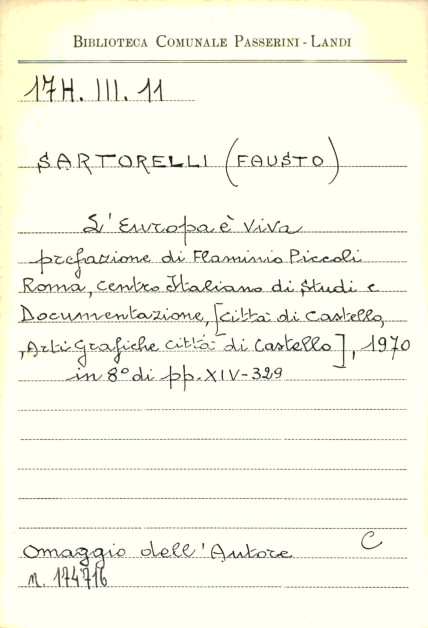 BIBLIOTECA COMUNALE PASSERINI - LANDI
17H. III. 11
SARTORELLI (FAUSTO)
L'Europa è viva
prefazione di Flaminio Piccoli
Roma, Centro Italiano di Studi e
Documentazione, [Città di Castello,
, Arti Grafiche Città di Castello], 1970
in 8° di pp. XIV-329
Omaggio dell'Autore C
n. 174716